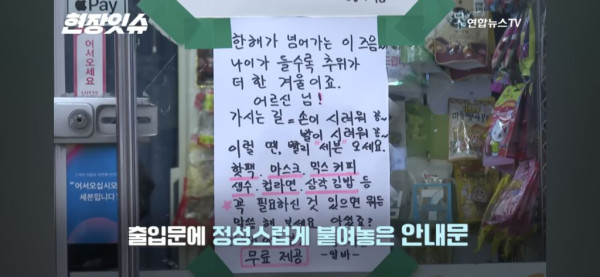 Pay
현장잇슈
연합뉴스TV
어서오세요
한해가 넘어가는 이 즈음~
나이가 들수록 추위가
더 한 겨울이죠.
어르신 님!
가시는 길 = 손이 시려워 꽁~
발이 시려워 꽁~
이럴 땐, 빨리 세븐 오세요.
핫팩. 마스크. 믹스커피
생수. 컵라면. 삼각김밥 등
꼭 필요하신 것 있으면 뭐든
말씀해 보세요. 아셨죠?
출입문에 정성스럽게 붙여놓은 안내문
무료 제공 -알바-
어서오십시오
세븐입니다.